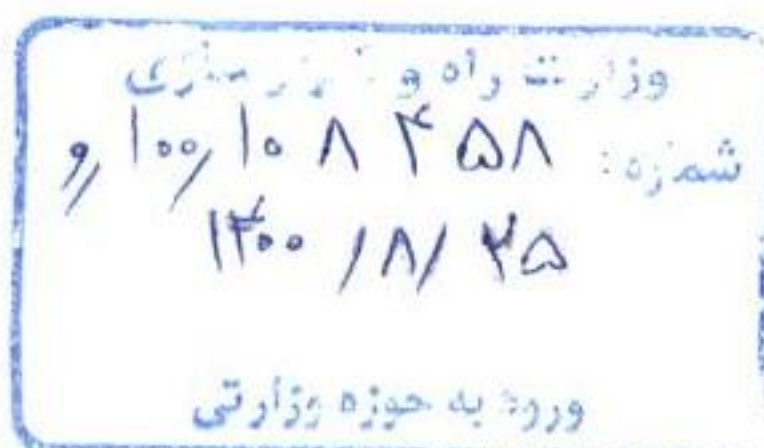 وزارت راه و شهرسازی
شماره: ۱۰۰/۱۰۸۴۵۸/و
۱۴۰۰/۸/۲۵
ورود به حوزه وزارتی